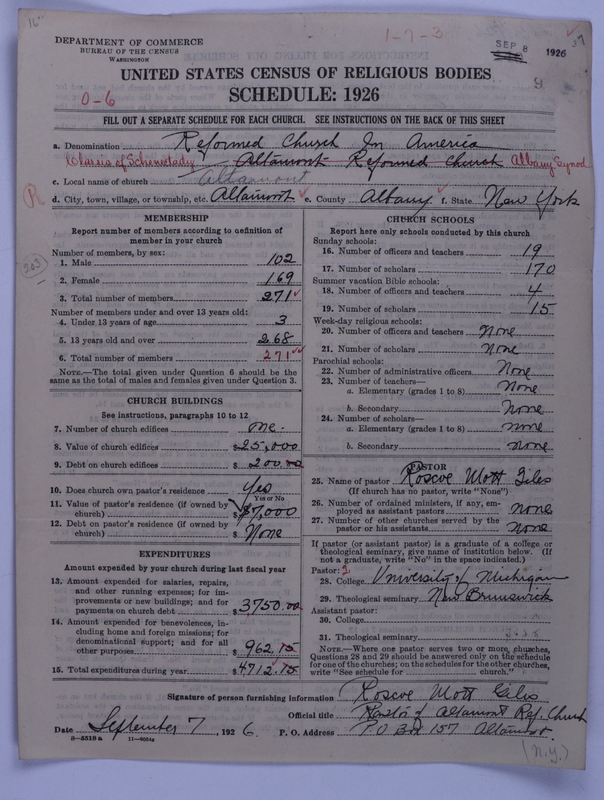 16
1-7-3
DEPARTMENT OF COMMERCE
BUREAU OF THE CENSUS
WASHINGTON
SEP 8 1926
37
UNITED STATES CENSUS OF RELIGIOUS BODIES
9
SCHEDULE: 1926
0-6
FILL OUT A SEPARATE SCHEDULE FOR EACH CHURCH. SEE INSTRUCTIONS ON THE BACK OF THIS SHEET
a. Denomination Reformed Church In America
Classis of Schenectady Altamont Reformed Church Albany Synod
c. Local name of church Altamont
R
d. City, town, village, or township, etc. Altamont e. County Albany f. State New York
MEMBERSHIP
Report number of members according to definition of member in your church
Number of members, by sex:
1. Male 102
2. Female 169
203
3. Total number of members 271
Number of members under and over 13 years old:
4. Under 13 years of age 3
5. 13 years old and over 268
6. Total number of members 271
NOTE.—The total given under Question 6 should be the
same as the total of males and females given under Question 3.
CHURCH BUILDINGS
See instructions, paragraphs 10 to 12
7. Number of church edifices one.
8. Value of church edifices $25,000
9. Debt on church edifices $ 200.00
10. Does church own pastor's residence Yes
Yes or No
11. Value of pastor's residence (if owned by
church) $7,000
12. Debt on pastor's residence (if owned by
church) $ None
EXPENDITURES
Amount expended by your church during last fiscal year
13. Amount expended for salaries, repairs,
and other running expenses; for im-
provements or new buildings; and for
payments on church debt $3,750.00
14. Amount expended for benevolences, in-
cluding home and foreign missions; for
denominational support; and for all
other purposes $ 962.15
15. Total expenditures during year $4712.15
CHURCH SCHOOLS
Report here only schools conducted by this church
Sunday schools:
16. Number of officers and teachers 19
17. Number of scholars 170
Summer vacation Bible schools:
18. Number of officers and teachers 4
19. Number of scholars 15
Week-day religious schools:
20. Number of officers and teachers None
21. Number of scholars None
Parochial schools:
22. Number of administrative officers None
23. Number of teachers—
a. Elementary (grades 1 to 8) None
b. Secondary None
24. Number of scholars—
a. Elementary (grades 1 to 8) none
b. Secondary none
PASTOR
25. Name of pastor Roscoe Mott Giles
(If church has no pastor, write "None")
26. Number of ordained ministers, if any, em-
ployed as assistant pastors none
27. Number of other churches served by the
pastor or his assistants None
If pastor (or assistant pastor) is a graduate of a college or
theological seminary, give name of institution below. (If
not a graduate, write "No" in the space indicated.)
Pastor: 2
28. College University of Michigan
29. Theological seminary New Brunswick
Assistant pastor:
30. College
31. Theological seminary
NOTE.—Where one pastor serves two or more churches,
Questions 28 and 29 should be answered only on the schedule
for one of the churches; on the schedules for the other churches,
write "See schedule for church."
Signature of person furnishing information Roscoe Mott Giles
Official title Pastor of Altamont Ref. Church
Date September 7, 1926. P. O. Address P O Box 157 Altamont.
8-5518a
(N.Y.)